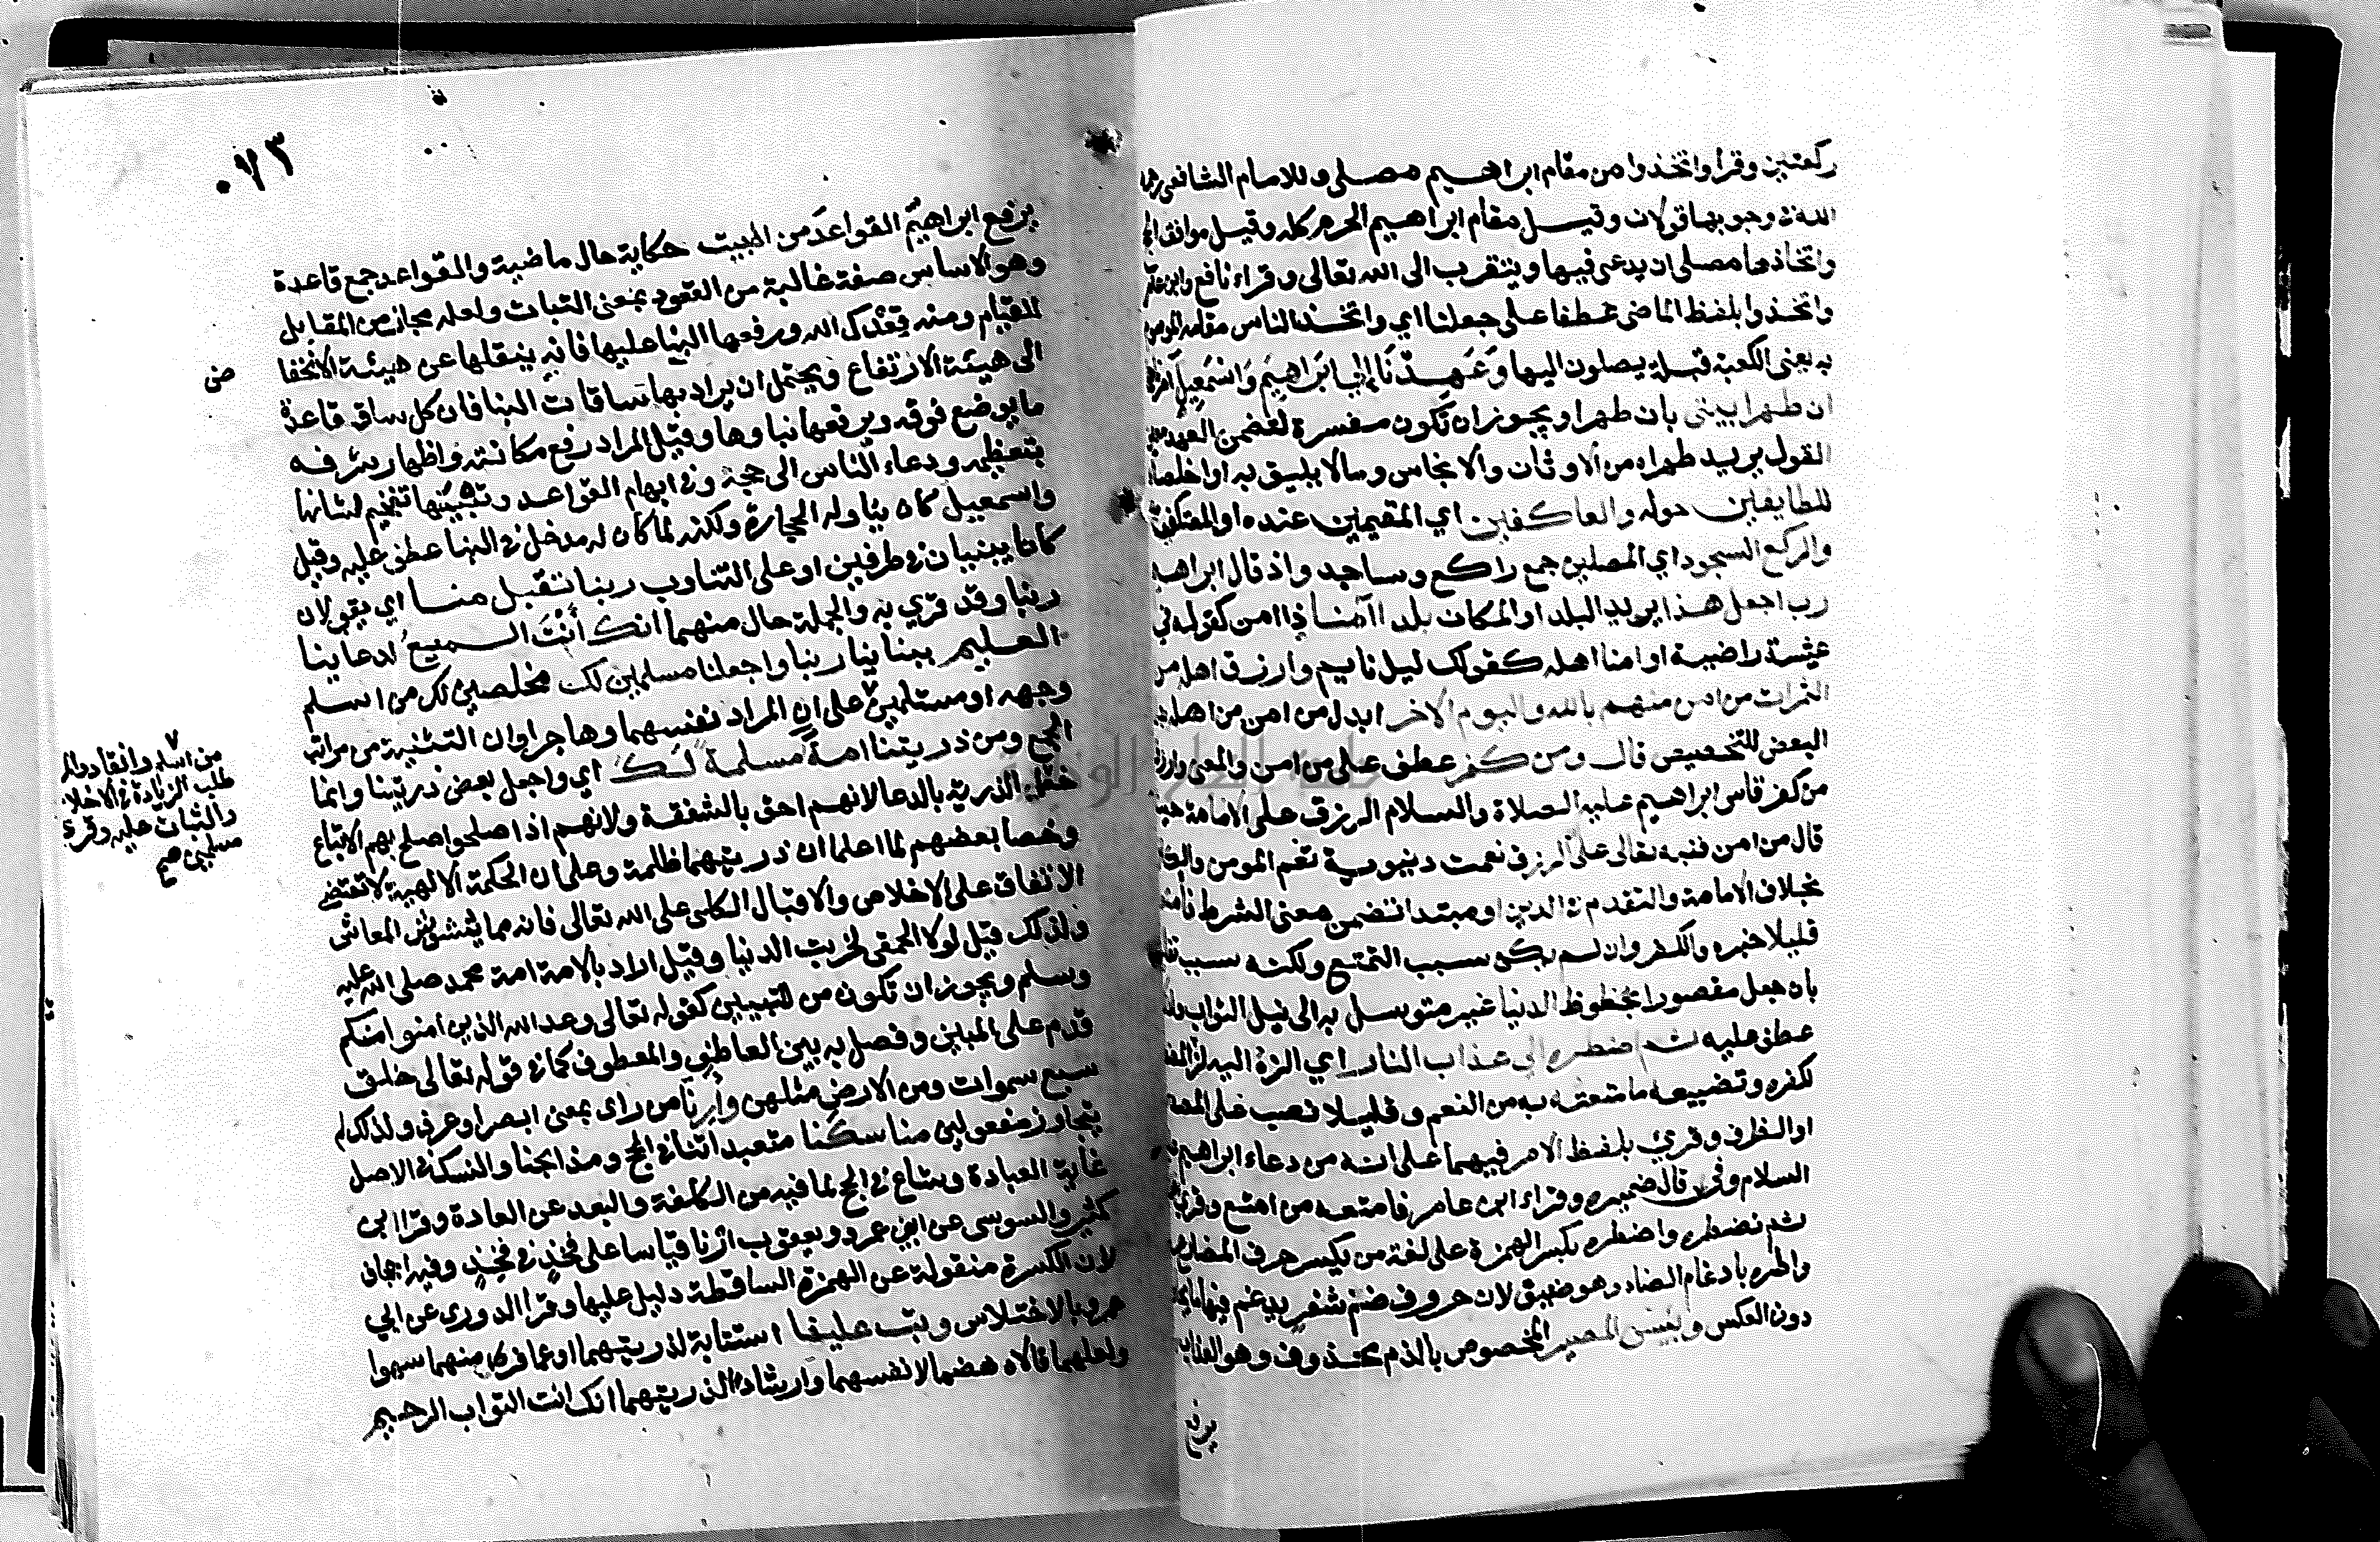 ركعتين وقرا واتخذوا من مقام ابراهيم مصلى وللامام الشافعي رحمه
الله في وجوبها قولان وقيل مقام ابراهيم الحرم كله وقيل مواقف
واتخاذها مصلى ان يدعى فيها ويتقرب الى الله تعالى وقراء نافع وابن عامر
واتخذوا بلفظ الماضي عطفا على جعلنا اي واتخذ الناس مقامه الموسوم
به يعني الكعبة قبلة يصلون اليها وعهدنا الى ابراهيم واسمعيل امرناهما
ان طهرا بيتي بان طهرا ويجوز ان تكون مفسرة لتضمن العهد معنى
القول يريد طهراه من الاوثان والانجاس وما لا يليق به او اخلصاه
للطايفين حوله والعاكفين اي المقيمين عنده او المعتكفين
والركع السجود اي المصلين جمع راكع وساجد واذ قال ابراهيم
رب اجعل هذا يريد البلد او المكان بلدا آمنا ذا امن كقوله في
عيشة راضية او امنا اهله كقولك ليل نايم وارزق اهله من
الثمرات من امن منهم بالله واليوم الاخر ابدل من امن من اهله بدل
البعض للتخصيص قال ومن كفر عطف على من امن والمعنى وارزق
من كفر قاس ابراهيم عليه الصلاة والسلام الرزق على الامامة حيث
قال من امن فنبه تعالى على ان الرزق نعمت دنيوية تعم المومن والكافر
بخلاف الامامة والتقدم في الدين او مبتدا تتضمن معنى الشرط فامتعه
قليلا خبره والكفر وان لم يكن سبب التمتع ولكنه سبب تقليله
بان جعل مقصورا بحظوظ الدنيا غير متوسل به الى نيل الثواب ولذلك
عطف عليه ثم اضطره الى عذاب النار اي الزه اليه لز المضطر
لكفره وتضييعه ما متعته به من النعم وقليلا نصب على المصدر
او الظرف وقري بلفظ الامر فيهما على انه من دعاء ابراهيم عليه
السلام وفي قال ضميره وقراء ابن عامر فامتعه من امتع وقري
ثم نضطره واضطره بكسر الهمزة على لغة من يكسر حرف المضارعة
واطره بادغام الضاد وهو ضعيف لان حروف ضم شفر يدغم فيها ما يجاورها
دون العكس وبئس المصير المخصوص بالذم محذوف وهو العذاب
يرفع
٠٧٣
يرفع ابراهيم القواعد من البيت حكاية حال ماضية والقواعد جمع قاعدة
وهو الاساس صفة غالبة من القعود بمعنى الثبات ولعله مجاز من المقابل
للقيام ومنه قعدك الله ورفعها البنا عليها فانه ينقلها عن هيئة الانخفا
ض
الى هيئة الارتفاع ويحتمل ان يراد بها ساقات البنا فان كل ساق قاعدة
ما يوضع فوقه ويرفعها بناوها وقيل المراد رفع مكانته واظهار شرفه
بتعظيمه ودعاء الناس الى حجه وفي ابهام القواعد وتبيينها تفخيم لشانها
واسمعيل كان يناوله الحجارة ولكنه لما كان له مدخل في البنا عطف عليه وقيل
كانا يبنيان في طرفين او على التناوب ربنا تقبل منا اي يقولان
ربنا وقد قري به والجملة حال منهما انك أنت السميع لدعاينا
العليم ببناينا ربنا واجعلنا مسلمين لك مخلصين لك من اسلم
وجهه او مستسلمين على ان المراد نفسهما وهاجر او ان التثنية من مراتب
من اسلم وانقاد والمراد
طلب الزيادة في الاخلاص
والثبات عليه وقري
مسلمين صح
الجمع ومن ذريتنا امة مسلمة لك اي واجعل بعض ذريتنا وانما
خصا الذرية بالدعا لانهم احق بالشفقة ولانهم اذا صلحوا صلح بهم الاتباع
وخصا بعضهم لما اعلما ان ذريتهما ظلمة وعلما ان الحكمة الالهية لا تقتضي
الاتفاق على الاخلاص والاقبال الكلى على الله تعالى فانه مما يشوش المعاش
ولذلك قيل لولا الحمقى لخربت الدنيا وقيل اراد بالامة امة محمد صلى الله عليه
وسلم ويجوز ان تكون من للتبيين كقوله تعالى وعد الله الذين امنوا منكم
قدم على المبين وفصل به بين العاطف والمعطوف كما في قوله تعالى خلق
سبع سموات ومن الارض مثلهن وأرنا من راى بمعنى ابصر او عرف ولذلك لم
يتجاوز مفعولين مناسكنا متعبداتنا في الحج ومذابحنا والنسك في الاصل
غاية العبادة وشاع في الحج لما فيه من الكلفة والبعد عن العادة وقرا ابن
كثير والسوسى عن ابي عمرو ويعقوب ارنا قياسا على فخذ في فخذ وفيه اجحاف
لان الكسرة منقولة عن الهمزة الساقطة دليل عليها وقرا الدورى عن ابي
عمرو بالاختلاس وتب علينا استتابة لذريتهما او عما فرط منهما سهوا
ولعلهما قالاه هضما لانفسهما وارشادا لذريتهما انك انت التواب الرحيم